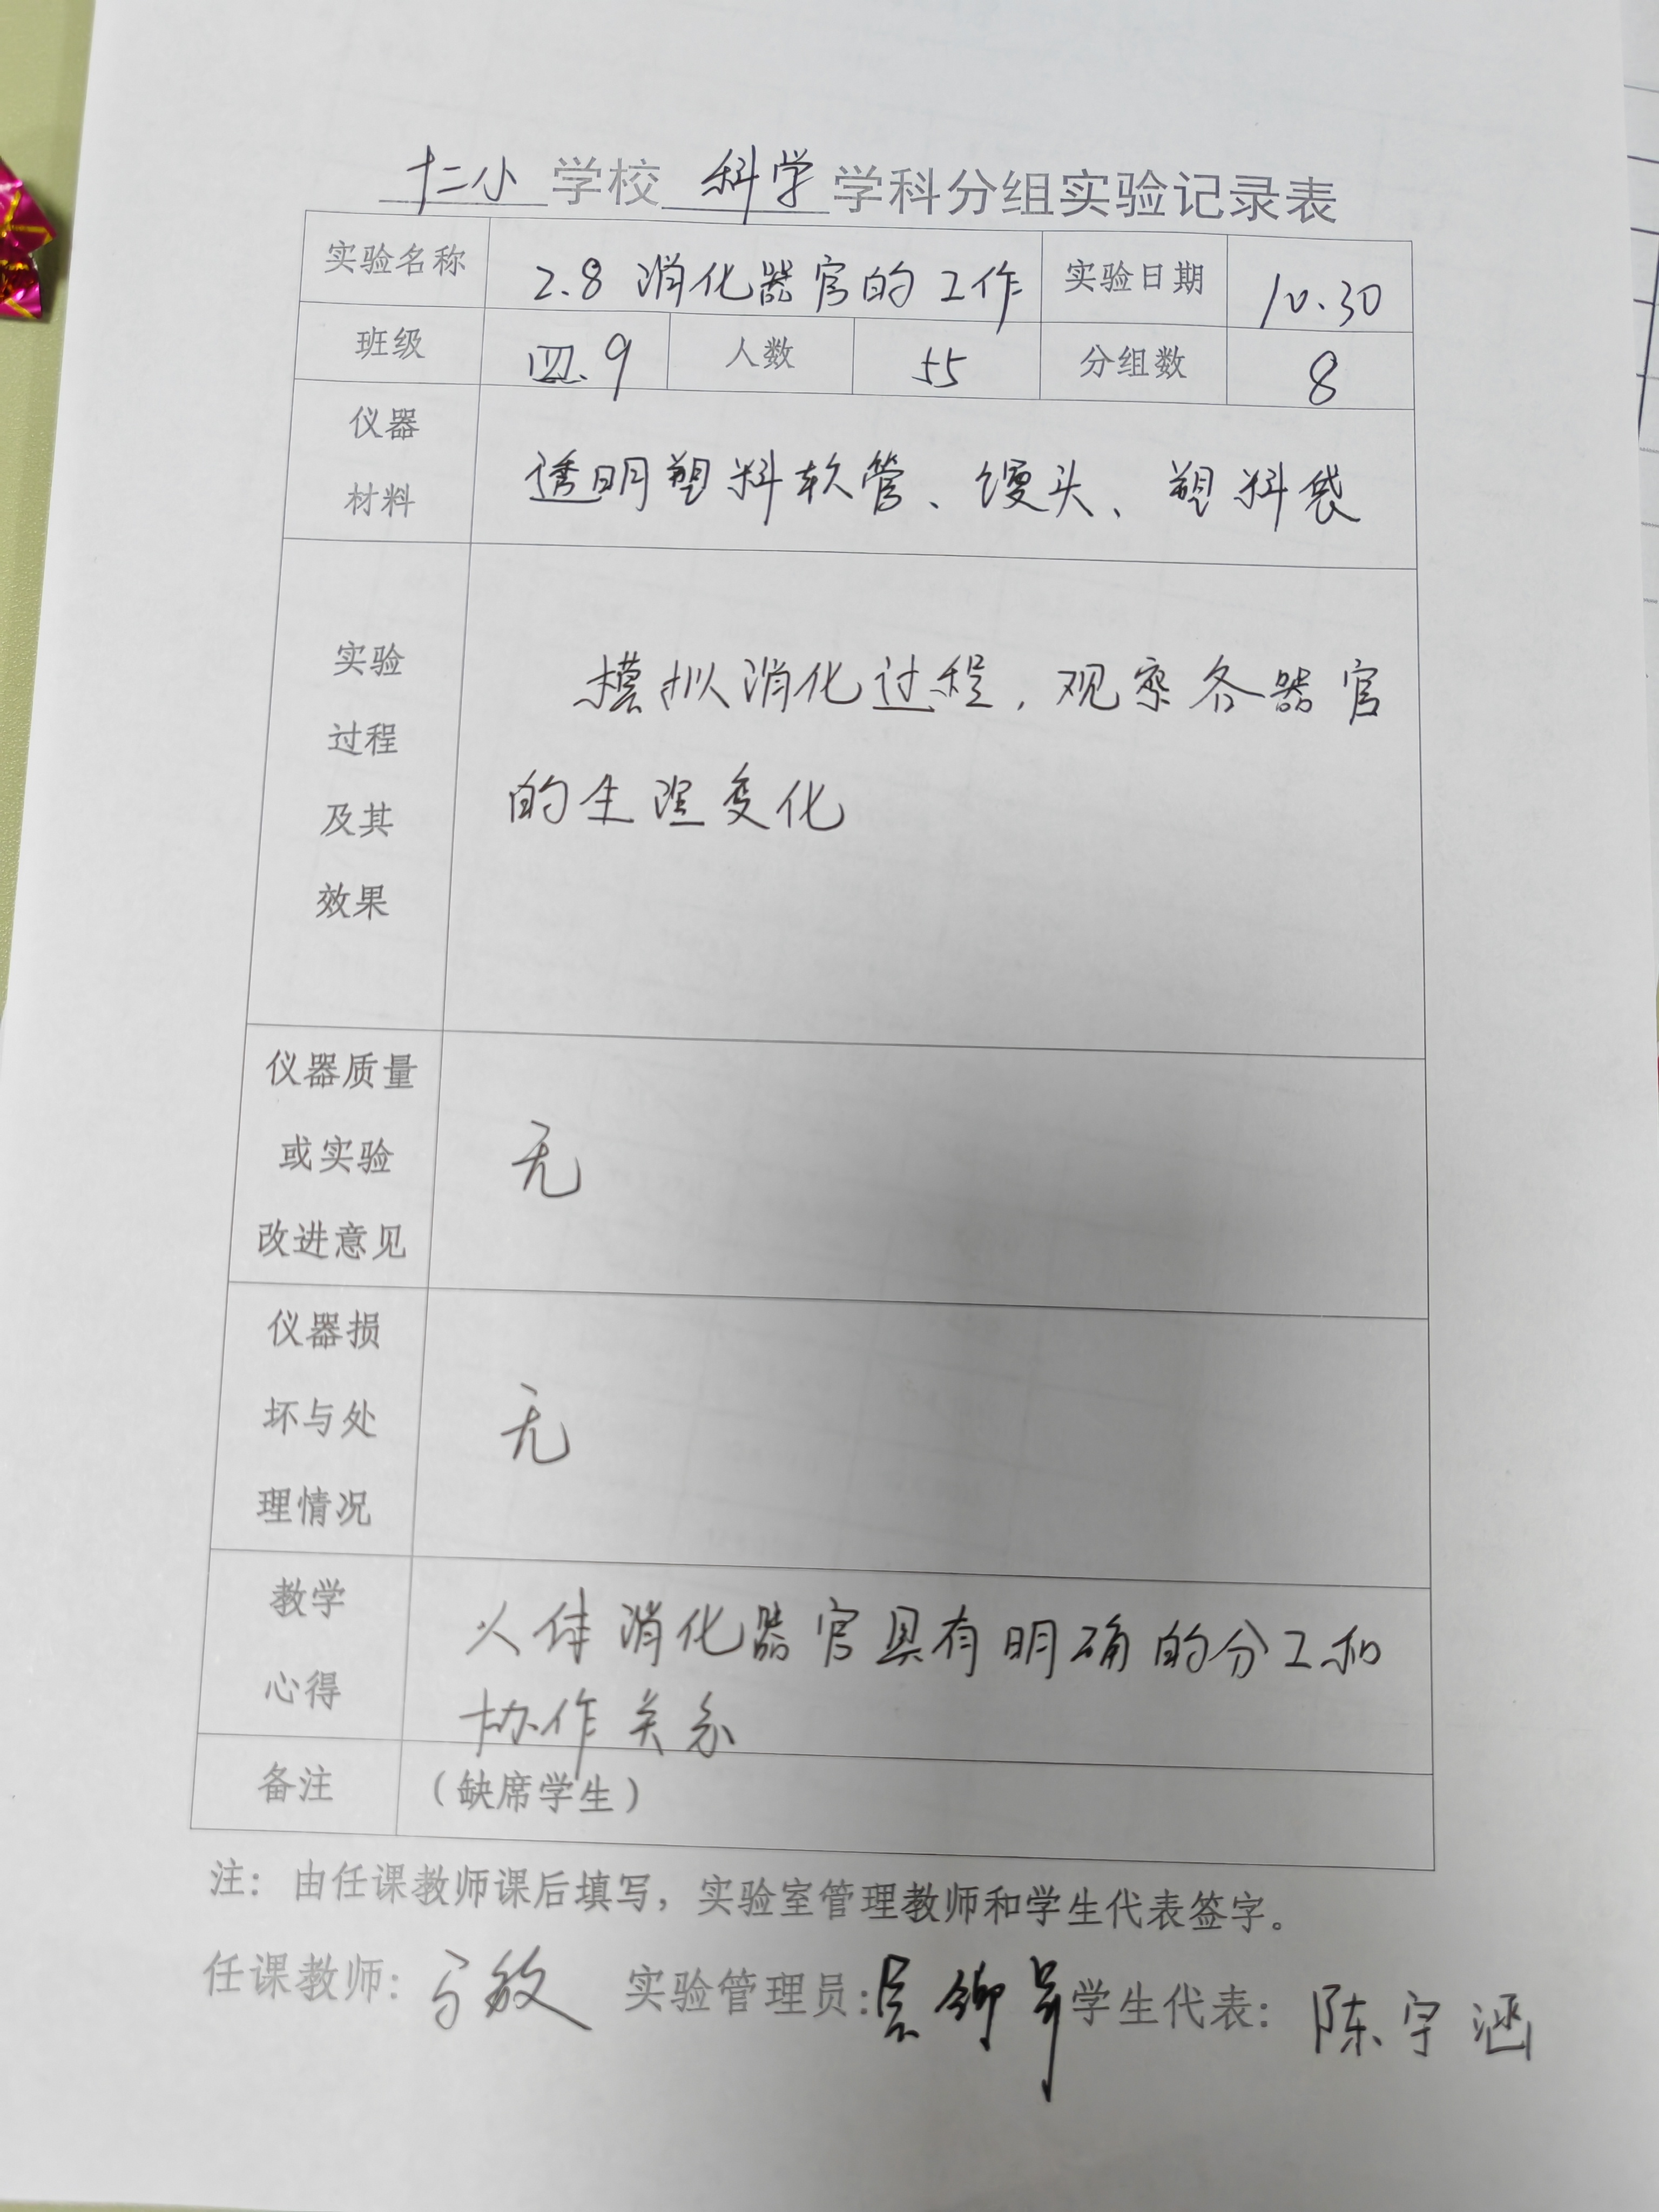 十二小学校科学学科分组实验记录表
实验名称 2.8 消化器官的工作 实验日期 10.30
班级 四.9 人数 55 分组数 8
仪器
材料
透明塑料软管、馒头、塑料袋
实验
过程
及其
效果
模拟消化过程，观察各器官
的生理变化
仪器质量
或实验
改进意见
无
仪器损
坏与处
理情况
无
教学
心得
人体消化器官具有明确的分工和
协作关系
备注 （缺席学生）
注：由任课教师课后填写，实验室管理教师和学生代表签字。
任课教师： 实验管理员： 学生代表：陈宇涵